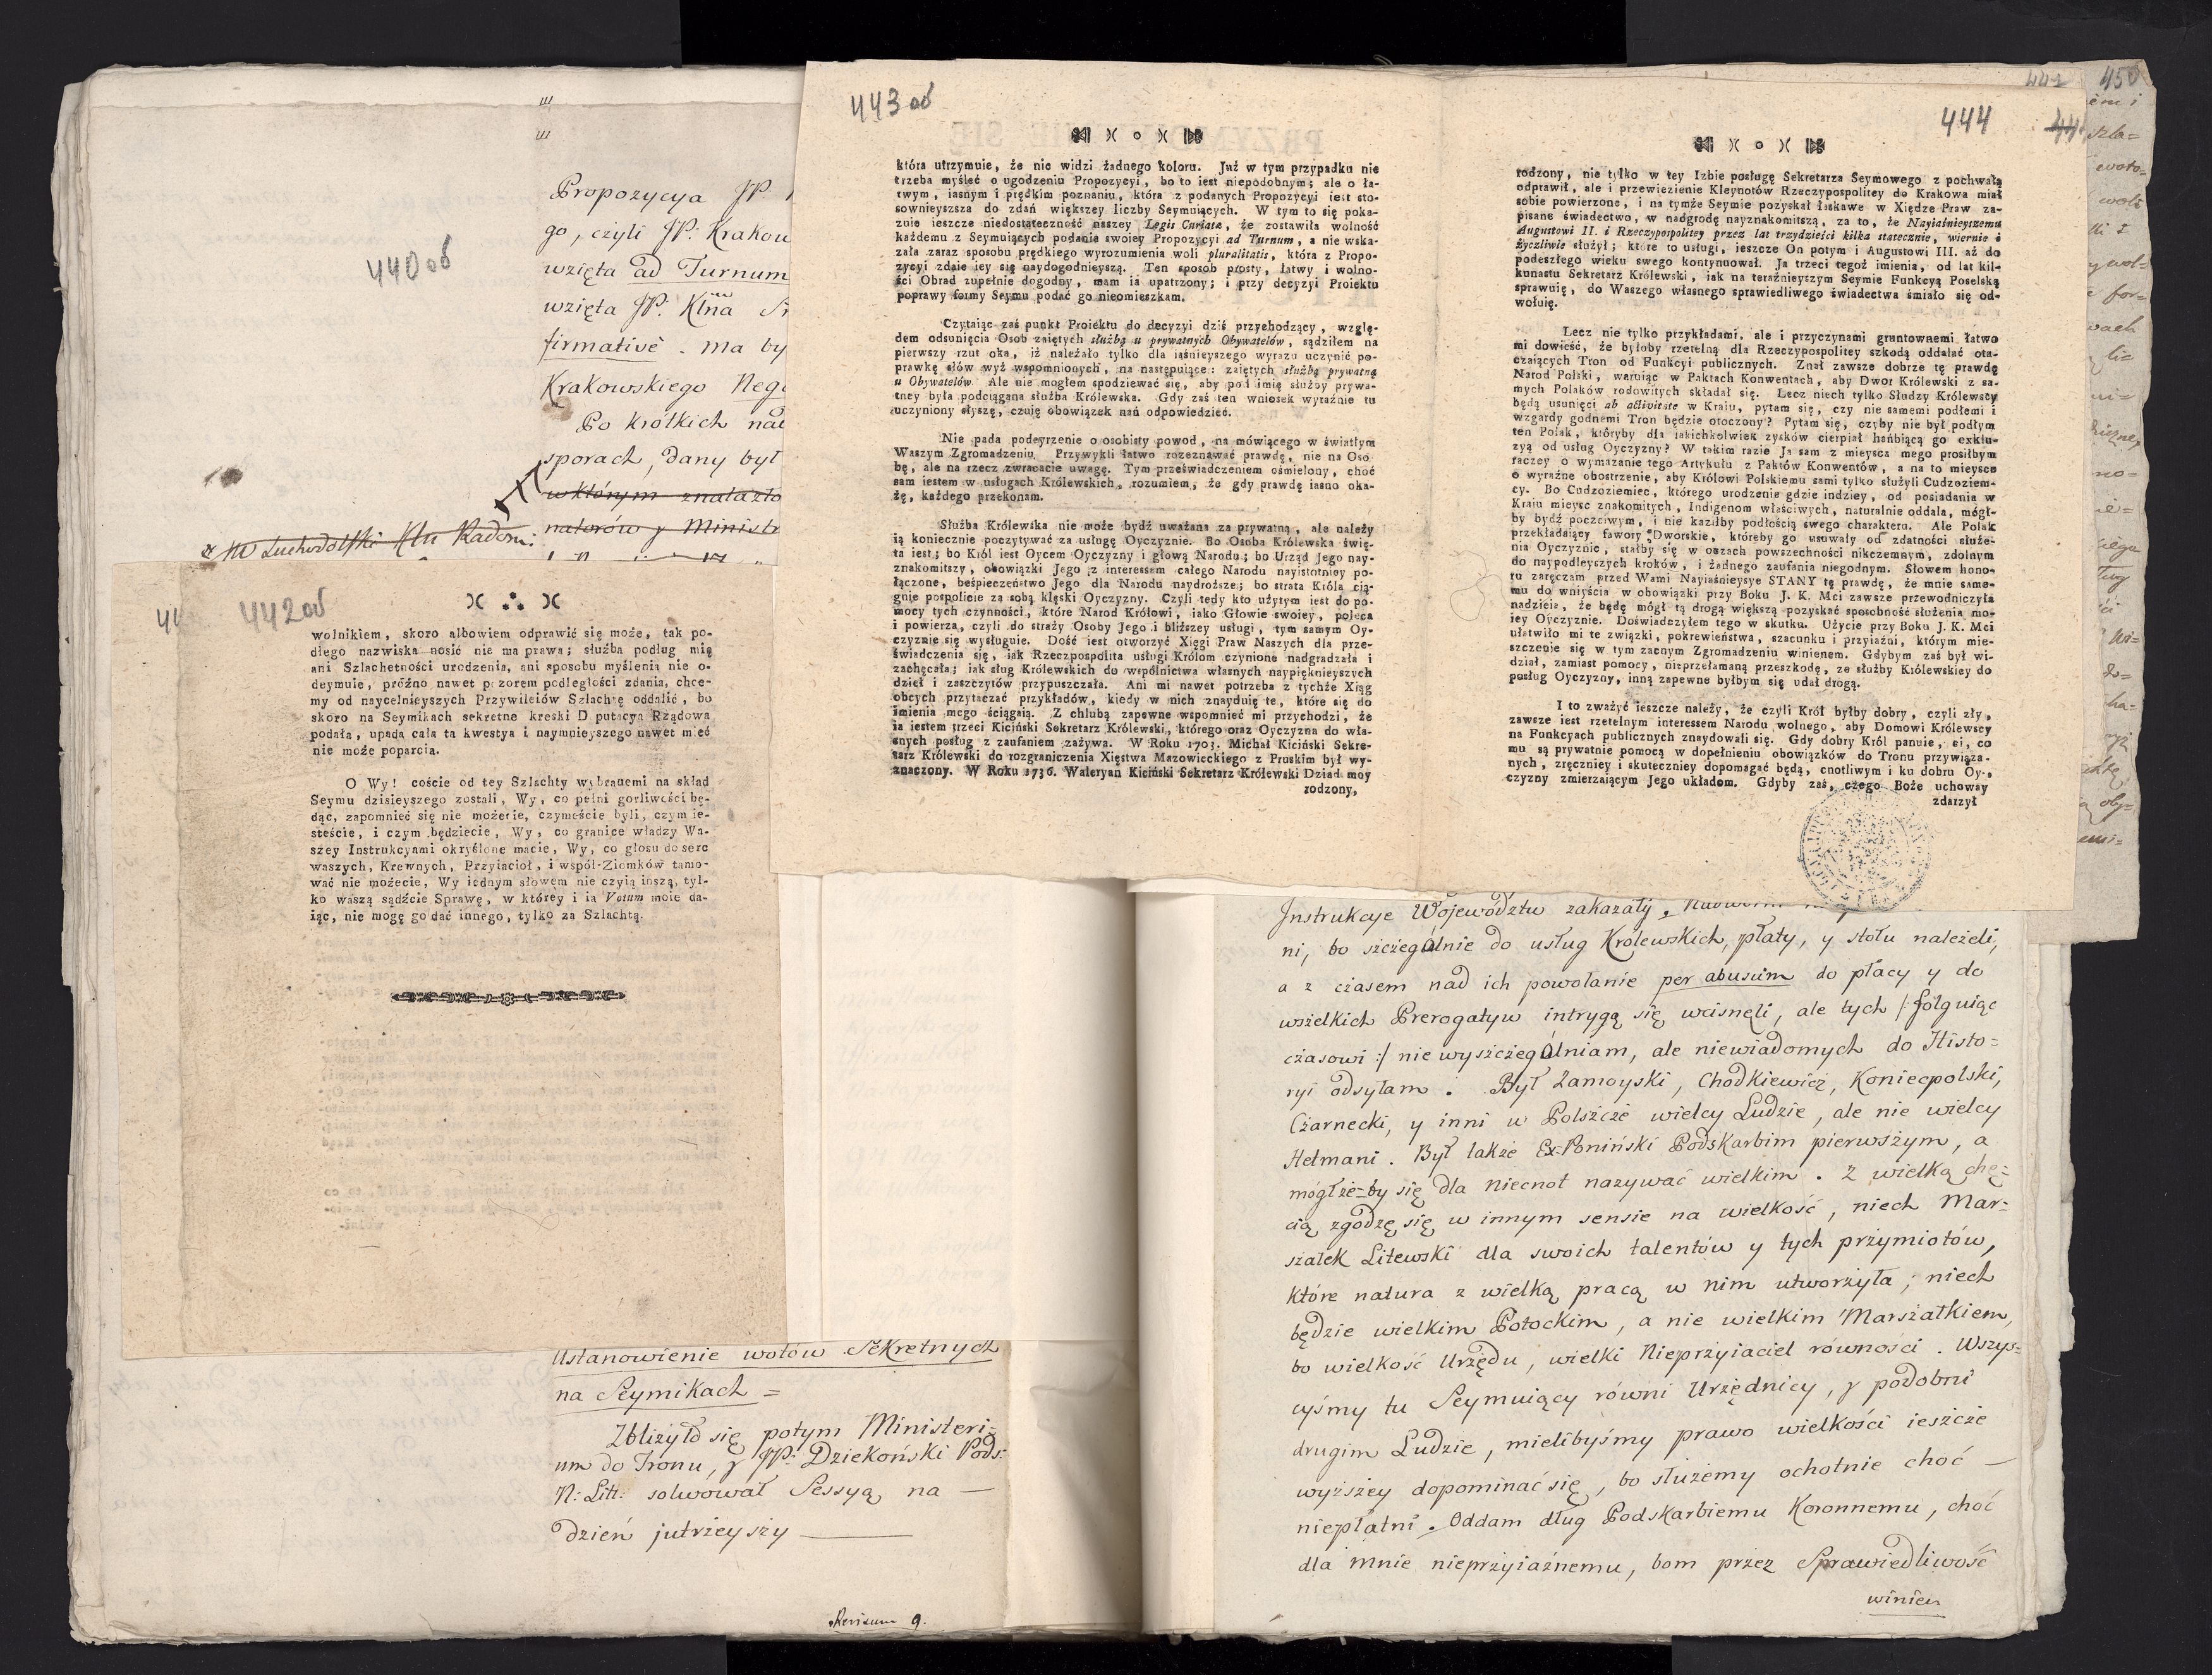 440 об
Propozycya JP:
go, czyli JP: Krakow
wzięta ad Turnum
wzięta JP: Kłna
firmativè. ma by
Krakowskiego Neg
Po krótkich
sporach, dany był
w którym znalazło
natorów y Ministr
JW Suchodolski Kłn Radom:
442 об
wolnikiem, skoro albowiem odprawić się może, tak po-
dłego nazwiska nosić nie ma prawa; służba podług mię
ani Szlachetności urodzenia, ani sposobu myślenia nie o-
deymuie, próżno nawet pozorem podległości zdania, chce-
my od naycelnieyszych Przywileiów Szlachtę oddalić, bo
skoro na Seymikach sekretne kreski Deputacya Rządowa
podała, upada cała ta kwestya i naymnieyszego nawet mieć
nie może poparcia.
O Wy! coście od tey Szlachty wybranemi na skład
Seymu dzisieyszego zostali, Wy, co pełni gorliwości bę-
dąc, zapomnieć się nie możecie, czymeście byli, czym ie-
steście, i czym będziecie, Wy, co granice władzy Wa-
szey Instrukcyami okryślone macie, Wy, co głosu do serc
waszych, Krewnych, Przyiacioł, i wspól-Ziomków tamo-
wać nie możecie, Wy iednym słowem nie czyią inszą, tyl-
ko waszą sądźcie Sprawę, w którey i ia Votum moie da-
iąc, nie mogę go dać innego, tylko za Szlachtą.
Ustanowienie wotów Sekretnych
na Seymikach =
Zbliżyło się potym Ministeri-
um do Tronu, y JP: Dziekoński Pods:
N: Litt: solwował Sessyą na —
dzień jutrzeyszy ———
Revisum 9.
443 об
która utrzymuie, że nie widzi żadnego koloru. Już w tym przypadku nie
trzeba myśleć o ugodzeniu Propozycyi, bo to iest niepodobnym; ale o ła-
twym, iasnym i prędkim poznaniu, która z podanych Propozycyi iest sto-
sownieyszsza do zdań większey liczby Seymuiących. W tym to się poka-
zuie ieszcze niedostateczność naszey Legis Curiatæ, że zostawiła wolność
każdemu z Seymuiących podania swoiey Propozycyi ad Turnum, a nie wska-
zała zaraz sposobu prędkiego wyrozumienia woli pluralitatis, która z Propo-
zycyi zdaie iey się naydogodnieyszą. Ten sposob prosty, łatwy i wolno-
ści Obrad zupełnie dogodny, mam ia upatrzony; i przy decyzyi Proiektu
poprawy formy Seymu podać go nieomieszkam.
Czytaiąc zaś punkt Proiektu do decyzyi dziś przychodzący, wzglę-
dem odsunięcia Osob zaiętych służbą u prywatnych Obywatelów, sądziłem na
pierwszy rzut oka, iż należało tylko dla iaśnieyszego wyrazu uczynić po-
prawkę słów wyż wspomnionych, na następuiące: zaiętych służbą prywatną
u Obywatelów. Ale nie mogłem spodziewać się, aby pod imię służby prywa-
tney była podciągana służba Królewska. Gdy zaś ten wniosek wyraźnie tu
uczyniony słyszę, czuię obowiązek nań odpowiedzieć.
Nie pada podeyrzenie o osobisty powod, na mówiącego w światłym
Waszym Zgromadzeniu. Przywykli łatwo rozeznawać prawdę, nie na Oso
bę, ale na rzecz zwracacie uwagę. Tym przeświadczeniem ośmielony, choć
sam iestem w usługach Królewskich, rozumiem, że gdy prawdę iasno oka-
żę, każdego przekonam.
Służba Królewska nie może bydź uważana za prywatną, ale należy
ią koniecznie poczytywać za usługę Oyczyznie. Bo Osoba Królewska świę-
ta iest; bo Król iest Oycem Oyczyzny i głową Narodu; bo Urząd Jego nay-
znakomitszy, obowiązki Jego z interessem całego Narodu nayistotniey po-
łączone, beśpieczeństwo Jego dla Narodu naydroższe; bo strata Króla cią-
gnie pospolicie za sobą klęski Oyczyzny. Czyli tedy kto użytym iest do po-
mocy tych czynności, które Narod Królowi, iako Głowie swoiey, poleca
i powierza, czyli do straży Osoby Jego i bliższey usługi, tym samym Oy-
czyznie się wysługuie. Dość iest otworzyć Xięgi Praw Naszych dla prze-
świadczenia się, iak Rzeczpospolita usługi Królom czynione nadgradzała i
zachęcała; iak sług Królewskich do wspólnictwa własnych naypięknieyszych
dzieł i zaszczytów przypuszczała. Ani mi nawet potrzeba z tychże Xiąg
obcych przytaczać przykładów, kiedy w nich znayduię te, które się do
imienia mego ściągaią. Z chlubą zapewne wspomnieć mi przychodzi, że
ia iestem trzeci Kiciński Sekretarz Królewski, którego oraz Oyczyzna do wła-
snych posług z zaufaniem zażywa. W Roku 1703. Michał Kiciński Sekre-
tarz Królewski do rozgraniczenia Xięstwa Mazowieckiego z Pruskim był wy-
znaczony. W Roku 1736. Waleryan Kiciński Sekretarz Królewski Dziad moy
rodzony,
444
rodzony, nie tylko w tey Izbie posługę Sekretarza Seymowego z pochwałą
odprawił, ale i przewiezienie Kleynotów Rzeczypospolitey do Krakowa miał
sobie powierzone, i na tymże Seymie pozyskał łaskawe w Xiędze Praw za-
pisane świadectwo, w nadgrodę nayznakomitszą, za to, że Nayiaśnieyszemu
Augustowi II. i Rzeczypospolitey przez lat trzydzieści kilka statecznie, wiernie i
życzliwie służył; które to usługi, ieszcze On potym i Augustowi III. aż do
podeszłego wieku swego kontynuował. Ja trzeci tegoż imienia, od lat kil-
kunastu Sekretarz Królewski, iak na teraźnieyszym Seymie Funkcyą Poselską
sprawuię, do Waszego własnego sprawiedliwego świadectwa śmiało się od-
wołuię.
Lecz nie tylko przykładami, ale i przyczynami gruntownemi łatwo
mi dowieść, że byłoby rzetelną dla Rzeczypospolitey szkodą oddalać ota-
czaiących Tron od Funkcyi publicznych. Znał zawsze dobrze tę prawdę
Narod Polski, waruiąc w Paktach Konwentach, aby Dwor Królewski z sa-
mych Polaków rodowitych składał się. Lecz niech tylko Słudzy Królewscy
będą usunięci ab activitate w Kraiu, pytam się, czy nie samemi podłemi i
wzgardy godnemi Tron będzie otoczony? Pytam się, czyby nie był podłym
ten Polak, któryby dla iakichkolwiek zysków cierpiał hańbiącą go exklu-
zyą od usług Oyczyzny? W takim razie Ja sam z mieysca mego prosiłbym
raczey o wymazanie tego Artykułu z Paktów Konwentów, a na to mieysce
o wyraźne obostrzenie, aby Królowi Polskiemu sami tylko służyli Cudzoziem-
cy. Bo Cudzoziemiec, którego urodzenie gdzie indziey, od posiadania w
Kraiu mieysc znakomitych, Indigenom właściwych, naturalnie oddala, mógł-
by bydź poczciwym, i nie kaziłby podłością swego charakteru. Ale Polak
przekładaiący fawory Dworskie, któreby go usuwały od zdatności służe-
nia Oyczyznie, stałby się w oczach powszechności nikczemnym, zdolnym
do naypodleyszych kroków, i żadnego zaufania niegodnym. Słowem hono-
ru zaręczam przed Wami Nayiaśnieysye STANY tę prawdę, że mnie same-
mu do wniyścia w obowiązki przy Boku J. K. Mci zawsze przewodniczyła
nadzieia, że będę mógł tą drogą większą pozyskać sposobność służenia mo-
iey Oyczyznie. Doświadczyłem tego w skutku. Użycie przy Boku J. K. Mci
ułatwiło mi te związki, pokrewieństwa, szacunku i przyiaźni, którym mie-
szczenie się w tym zacnym Zgromadzeniu winienem. Gdybym zaś był wi-
dział, zamiast pomocy, nieprzełamaną przeszkodę, ze służby Królewskiey do
posług Oyczyzny, inną zapewne byłbym się udał drogą.
I to zważyć ieszcze należy, że czyli Król byłby dobry, czyli zły,
zawsze iest rzetelnym interessem Narodu wolnego, aby Domowi Królewscy
na Funkcyach publicznych znaydowali się. Gdy dobry Król panuie, ci, co
mu są prywatnie pomocą w dopełnieniu obowiązków do Tronu przywiąza-
nych, zręczniey i skuteczniey dopomagać będą, cnotliwym i ku dobru Oy-
czyzny zmierzaiącym Jego układom. Gdyby zaś, czego Boże uchoway
zdarzył
450
Instrukcye Województw zakazały.
ni, bo szczegÓlnie do usług Królewskich, płaty, y stołu należeli,
a z czasem nad ich powołanie per abusum do płacy y do
wszelkich Prerogatyw intrygą się wcisnęli, ale tych /: fólguiąc
czasowi :/ nie wyszczegÓlniam, ale niewiadomych do Histo=
ryi odsyłam. Był Zamoyski, Chodkiewicz, Koniecpolski,
Czarnecki, y inni w Polszcze wielcy Ludzie, ale nie wielcy
Hetmani. Był także Ex-Poniński Podskarbim pierwszym, a
mógłże-by się dla niecnot nazywać wielkim. Z wielką chę=
cią zgodzę się w innym sensie na wielkość, niech Mar=
szałek Litewski dla swoich talentów y tych przymiotów,
które natura z wielką pracą w nim utworzyła; niech
będzie wielkim Potockim, a nie wielkim Marszałkiem,
bo wielkość Urzędu, wielki Nieprzyiaciel równości. Wszys=
cyśmy tu Seymuiący równi Urzędnicy, y podobni
drugim Ludzie, mielibyśmy prawo wielkości ieszcze
wyższey dopominać się, bo służemy ochotnie choć —
niepłatni. Oddam dług Podskarbiemu Koronnemu, choć
dla mnie nieprzyiaźnemu, bom przez Sprawiedliwość
winien